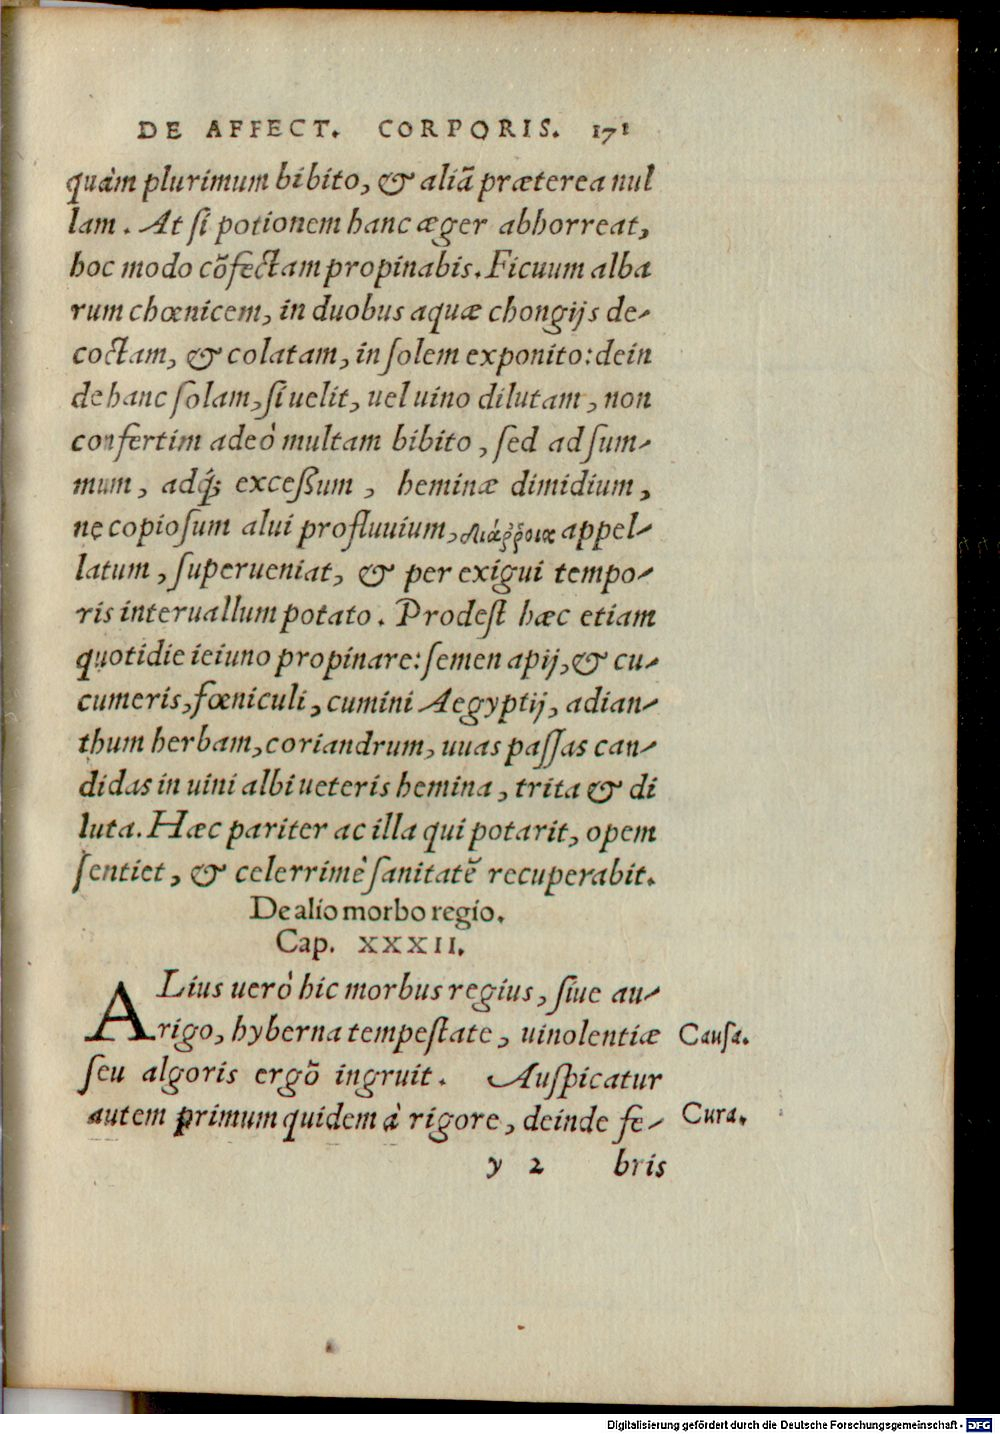 DE AFFECT. CORPORIS. 171
quàm plurimum bibito, & aliā præterea nul
lam. At si potionem hanc æger abhorreat,
hoc modo cōfectam propinabis. Ficuum alba
rum chœnicem, in duobus aquæ chongijs de-
coctam, & colatam, in solem exponito: dein
de hanc solam, si uelit, uel uino dilutam, non
confertim adeò multam bibito, sed ad sum-
mum, adq́; excessum, heminæ dimidium,
ne copiosum alui profluuium, διάῤῥοια appel-
latum, superueniat, & per exigui tempo-
ris interuallum potato. Prodest hæc etiam
quotidie ieiuno propinare: semen apij, & cu-
cumeris, fœniculi, cumini Aegyptij, adian-
thum herbam, coriandrum, uuas passas can-
didas in uini albi ueteris hemina, trita & di
luta. Hæc pariter ac illa qui potarit, opem
sentiet, & celerrimè sanitatē recuperabit.
De alio morbo regio.
Cap. XXXII.
ALius uerò hic morbus regius, siue au-
rigo, hyberna tempestate, uinolentiæ
Causa.
seu algoris ergō ingruit. Auspicatur
autem primum quidem à rigore, deinde fe-
Cura.
y 2 bris
Digitalisierung gefördert durch die Deutsche Forschungsgemeinschaft - DFG